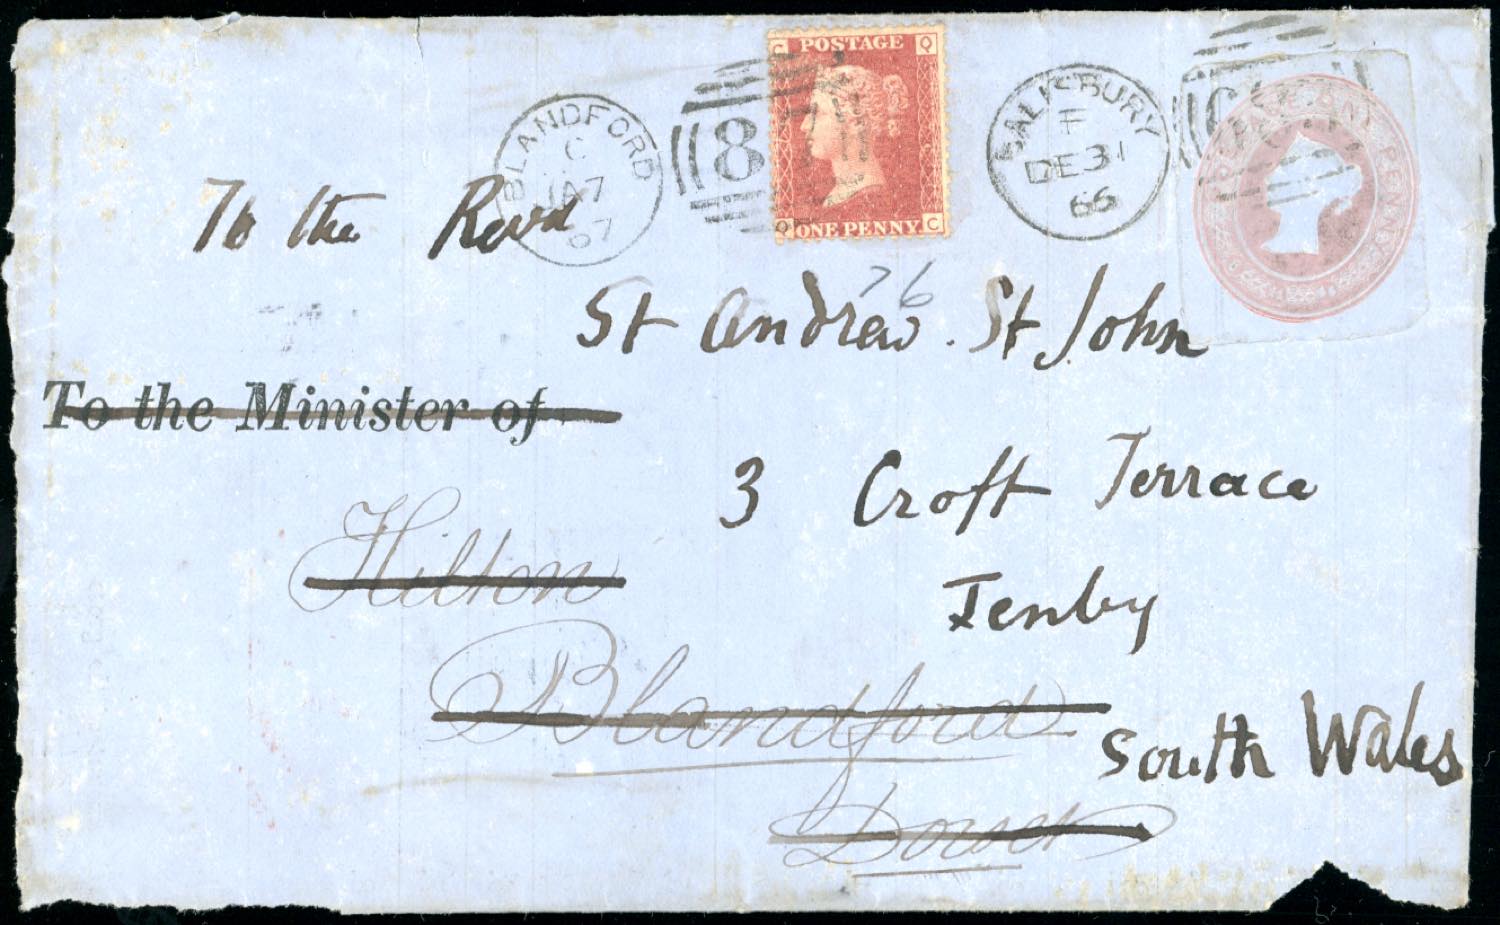 POSTAGE
C Q
Q C
ONE PENNY
BLANDFORD
C
JA 7
67
8
SALISBURY
F
DE 31
66
PENNY
To the Revd
76
St Andrew. St John
To the Minister of
3 Croft Terrace
Hilton
Tenby
Blandford
South Wales
Dorset